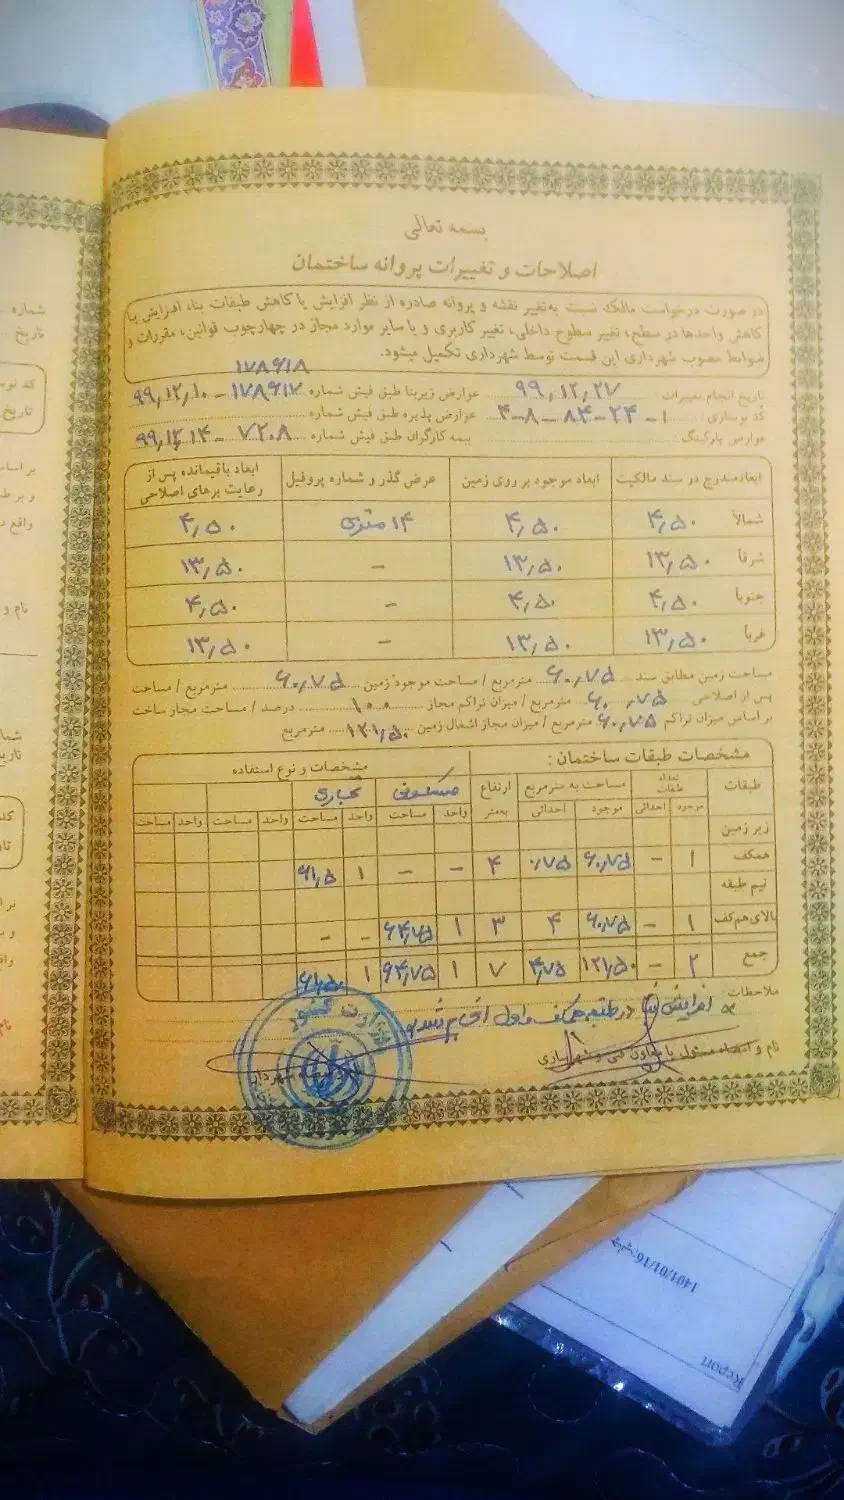 بسمه تعالی
اصلاحات و تغییرات پروانه ساختمان
در صورت درخواست مالک نسبت به تغییر نقشه و پروانه صادره از نظر افزایش یا کاهش طبقات بنا، افزایش یا
کاهش واحدها در سطح، تغییر سطوح داخلی، تغییر کاربری و یا سایر موارد مجاز در چهارچوب قوانین، مقررات و
ضوابط مصوب شهرداری این قسمت توسط شهرداری تکمیل میشود.
۱۷۸۶۱۸
تاریخ انجام تغییرات ۹۹,۱۲,۲۷ عوارض زیربنا طبق فیش شماره ۱۷۸۶۱۷ - ۹۹,۱۲,۱۰
کد نوسازی ۱-۲۴-۸۴-۸-۴ عوارض پذیره طبق فیش شماره
عوارض پارکینگ بیمه کارگران طبق فیش شماره ۷۲۰۸ - ۹۹,۱۲,۱۴
ابعاد مندرج در سند مالکیت ابعاد موجود بر روی زمین عرض گذر و شماره پروفیل ابعاد باقیمانده پس از رعایت برهای اصلاحی
شمالاً ۴,۵۰ ۴,۵۰ ۱۴ متری ۴,۵۰
شرقاً ۱۳,۵۰ ۱۳,۵۰ - ۱۳,۵۰
جنوباً ۴,۵۰ ۴,۵۰ - ۴,۵۰
غرباً ۱۳,۵۰ ۱۳,۵۰ - ۱۳,۵۰
مساحت زمین مطابق سند ۶۰,۷۵ مترمربع / مساحت موجود زمین ۶۰,۷۵ مترمربع / مساحت
پس از اصلاحی ۶۰,۷۵ مترمربع / میزان تراکم مجاز ۱۰۰ درصد / مساحت مجاز ساخت
بر اساس میزان تراکم ۶۰,۷۵ مترمربع / میزان مجاز اشغال زمین ۱۲۱,۵۰ مترمربع
مشخصات طبقات ساختمان : مشخصات و نوع استفاده
طبقات تعداد طبقات مساحت به مترمربع ارتفاع مسکونی تجاری
موجود احداثی موجود احداثی به متر واحد مساحت واحد مساحت واحد مساحت واحد مساحت
زیر زمین
همکف ۱ - ۶۰,۷۵ ۰,۷۵ ۴ - - ۱ ۶۱,۵
نیم طبقه
بالای همکف ۱ - ۶۰,۷۵ ۴ ۳ ۱ ۶۴,۷۵ - -
جمع ۲ - ۱۲۱,۵۰ ۴,۷۵ ۷ ۱ ۶۴,۷۵ ۱ ۶۱,۵۰
ملاحظات
افزایش بنا در طبقه همکف و اول
نام و امضاء مسئول یا معاون فنی و شهرسازی شهردار
وزارت کشور
شماره
تاریخ
کد نوسازی
تاریخ
بر اساس
و بر ط
واقع د
نام و
1401/01/16
Report